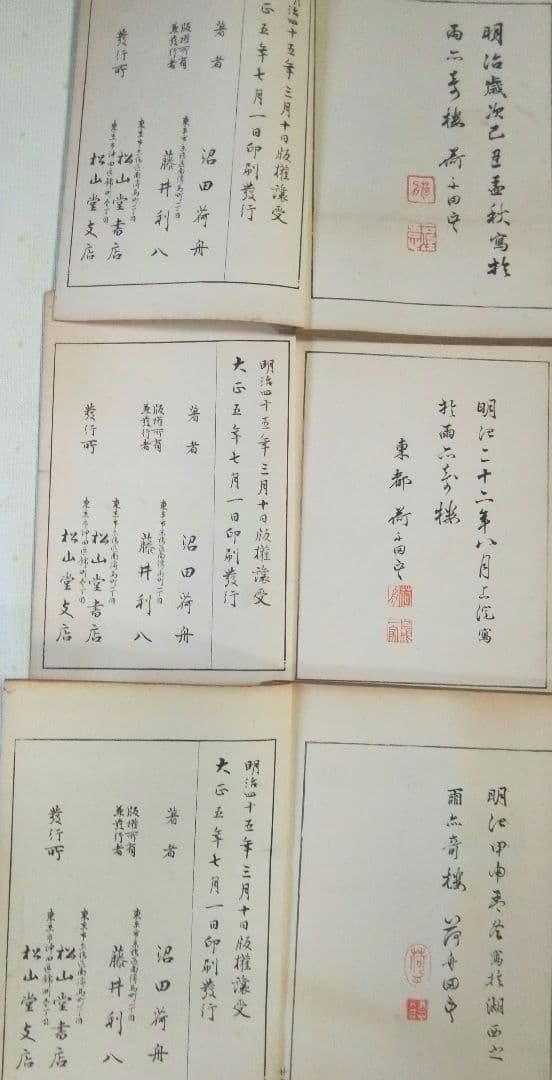 明治歳次己丑孟秋寫於
雨亦奇樓 荷舟田守
明治四十五年三月十日版權讓受
大正五年七月一日印刷發行
著者 沼田荷舟
版權所有
兼發行者
藤井利八
發行所
松山堂書店
松山堂支店
明治二十二年八月上浣寫
於雨亦奇樓
東都 荷舟田守
明治四十五年三月十日版權讓受
大正五年七月一日印刷發行
著者 沼田荷舟
版權所有
兼發行者
藤井利八
發行所
東京市京橋區南傳馬町二丁目
松山堂書店
東京市神田區錦町壹丁目
松山堂支店
明治甲申
雨亦奇樓 荷舟田守
明治四十五年三月十日版權讓受
大正五年七月一日印刷發行
著者 沼田荷舟
版權所有
兼發行者
東京市京橋區南傳馬町二丁目
藤井利八
發行所
東京市京橋區南傳馬町二丁目
松山堂書店
東京市神田區錦町壹丁目
松山堂支店